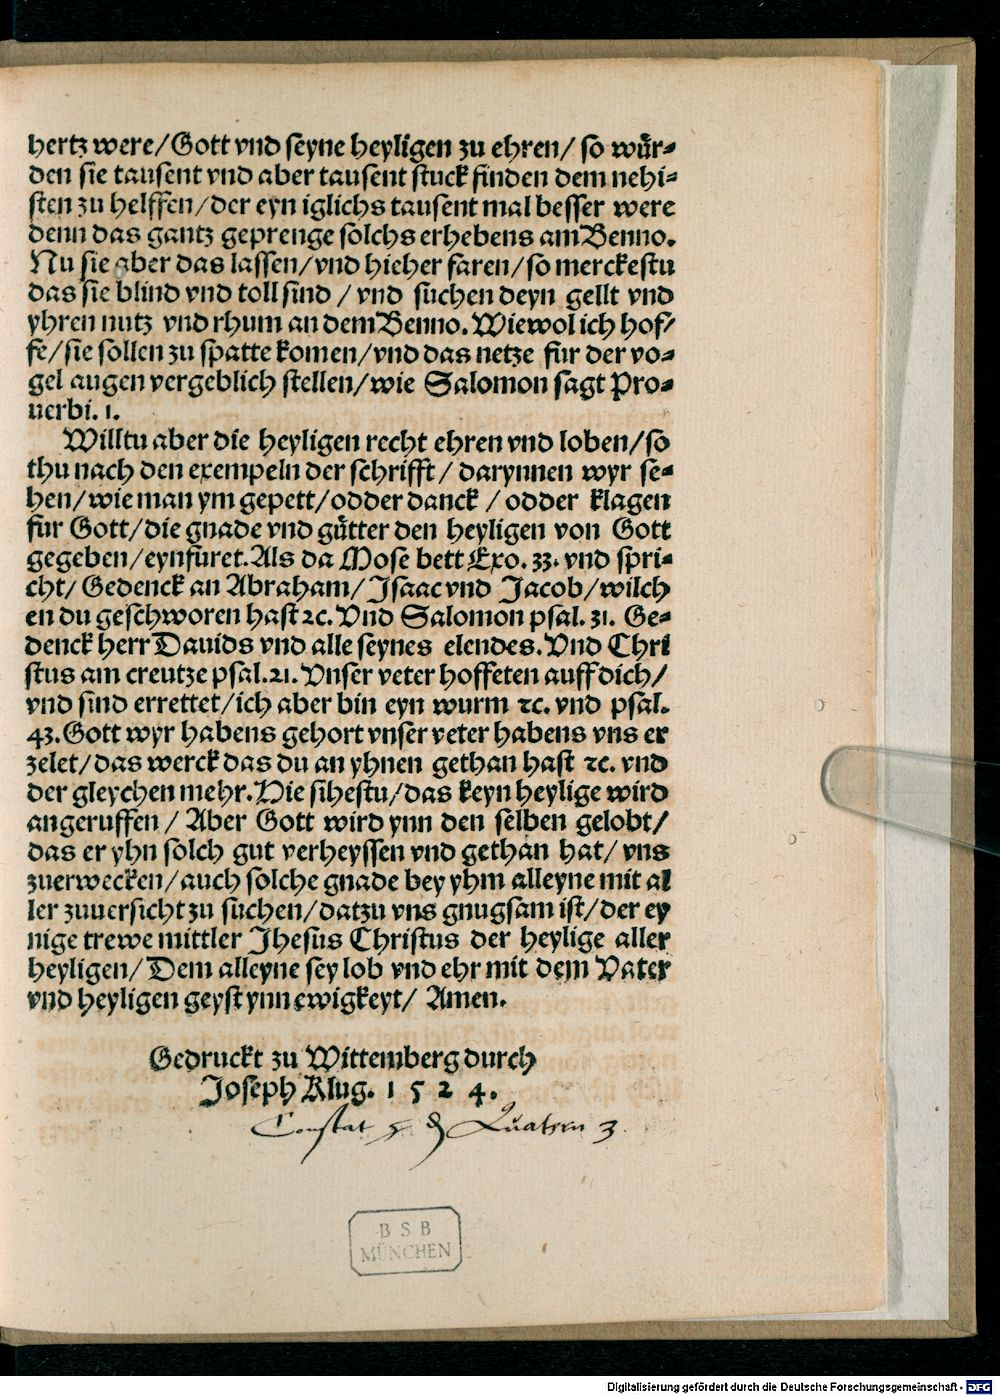 hertz were/Gott vnd seyne heyligen zu ehren/ so wuͤr⸗
den sie tausent vnd aber tausent stuck finden dem nehi⸗
sten zu helffen/der eyn iglichs tausent mal besser were
denn das gantz geprenge solchs erhebens am Benno.
Nu sie aber das lassen/vnd hieher faren/so merckestu
das sie blind vnd toll sind / vnd suchen deyn gellt vnd
yhren nutz vnd rhum an dem Benno. Wiewol ich hof/
fe/sie sollen zu spatte komen/vnd das netze fur der vo⸗
gel augen vergeblich stellen/wie Salomon sagt Pro⸗
uerbi. 1.
Willtu aber die heyligen recht ehren vnd loben/so
thu nach den exempeln der schrifft/ darynnen wyr se⸗
hen/wie man ym gepett/odder danck / odder klagen
fur Gott/die gnade vnd guͤtter den heyligen von Gott
gegeben/eynfuret. Als da Mose bett Exo. 33. vnd spri⸗
cht/ Gedenck an Abraham/ Isaac vnd Jacob/wilch
en du geschworen hast ꝛc. Vnd Salomon psal. 31. Ge⸗
denck herr Dauids vnd alle seynes elendes. Vnd Chri
stus am creutze psal. 21. Vnser veter hoffeten auff dich/
vnd sind errettet/ich aber bin eyn wurm ꝛc. vnd psal.
43. Gott wyr habens gehort vnser veter habens vns er
zelet/das werck das du an yhnen gethan hast ꝛc. vnd
der gleychen mehr. Hie sihestu/das keyn heylige wird
angeruffen / Aber Gott wird ynn den selben gelobt/
das er yhn solch gut verheyssen vnd gethan hat/ vns
zuerwecken/auch solche gnade bey yhm alleyne mit al
ler zuuersicht zu suchen/datzu vns gnugsam ist/der ey
nige trewe mittler Jhesus Christus der heylige aller
heyligen/ Dem alleyne sey lob vnd ehr mit dem Vater
vnd heyligen geyst ynn ewigkeyt/ Amen.
Gedruckt zu Wittemberg durch
Joseph Klug. 1 5 2 4.
Constat Quatern 3.
B S B
MÜNCHEN
Digitalisierung gefördert durch die Deutsche Forschungsgemeinschaft - DFG